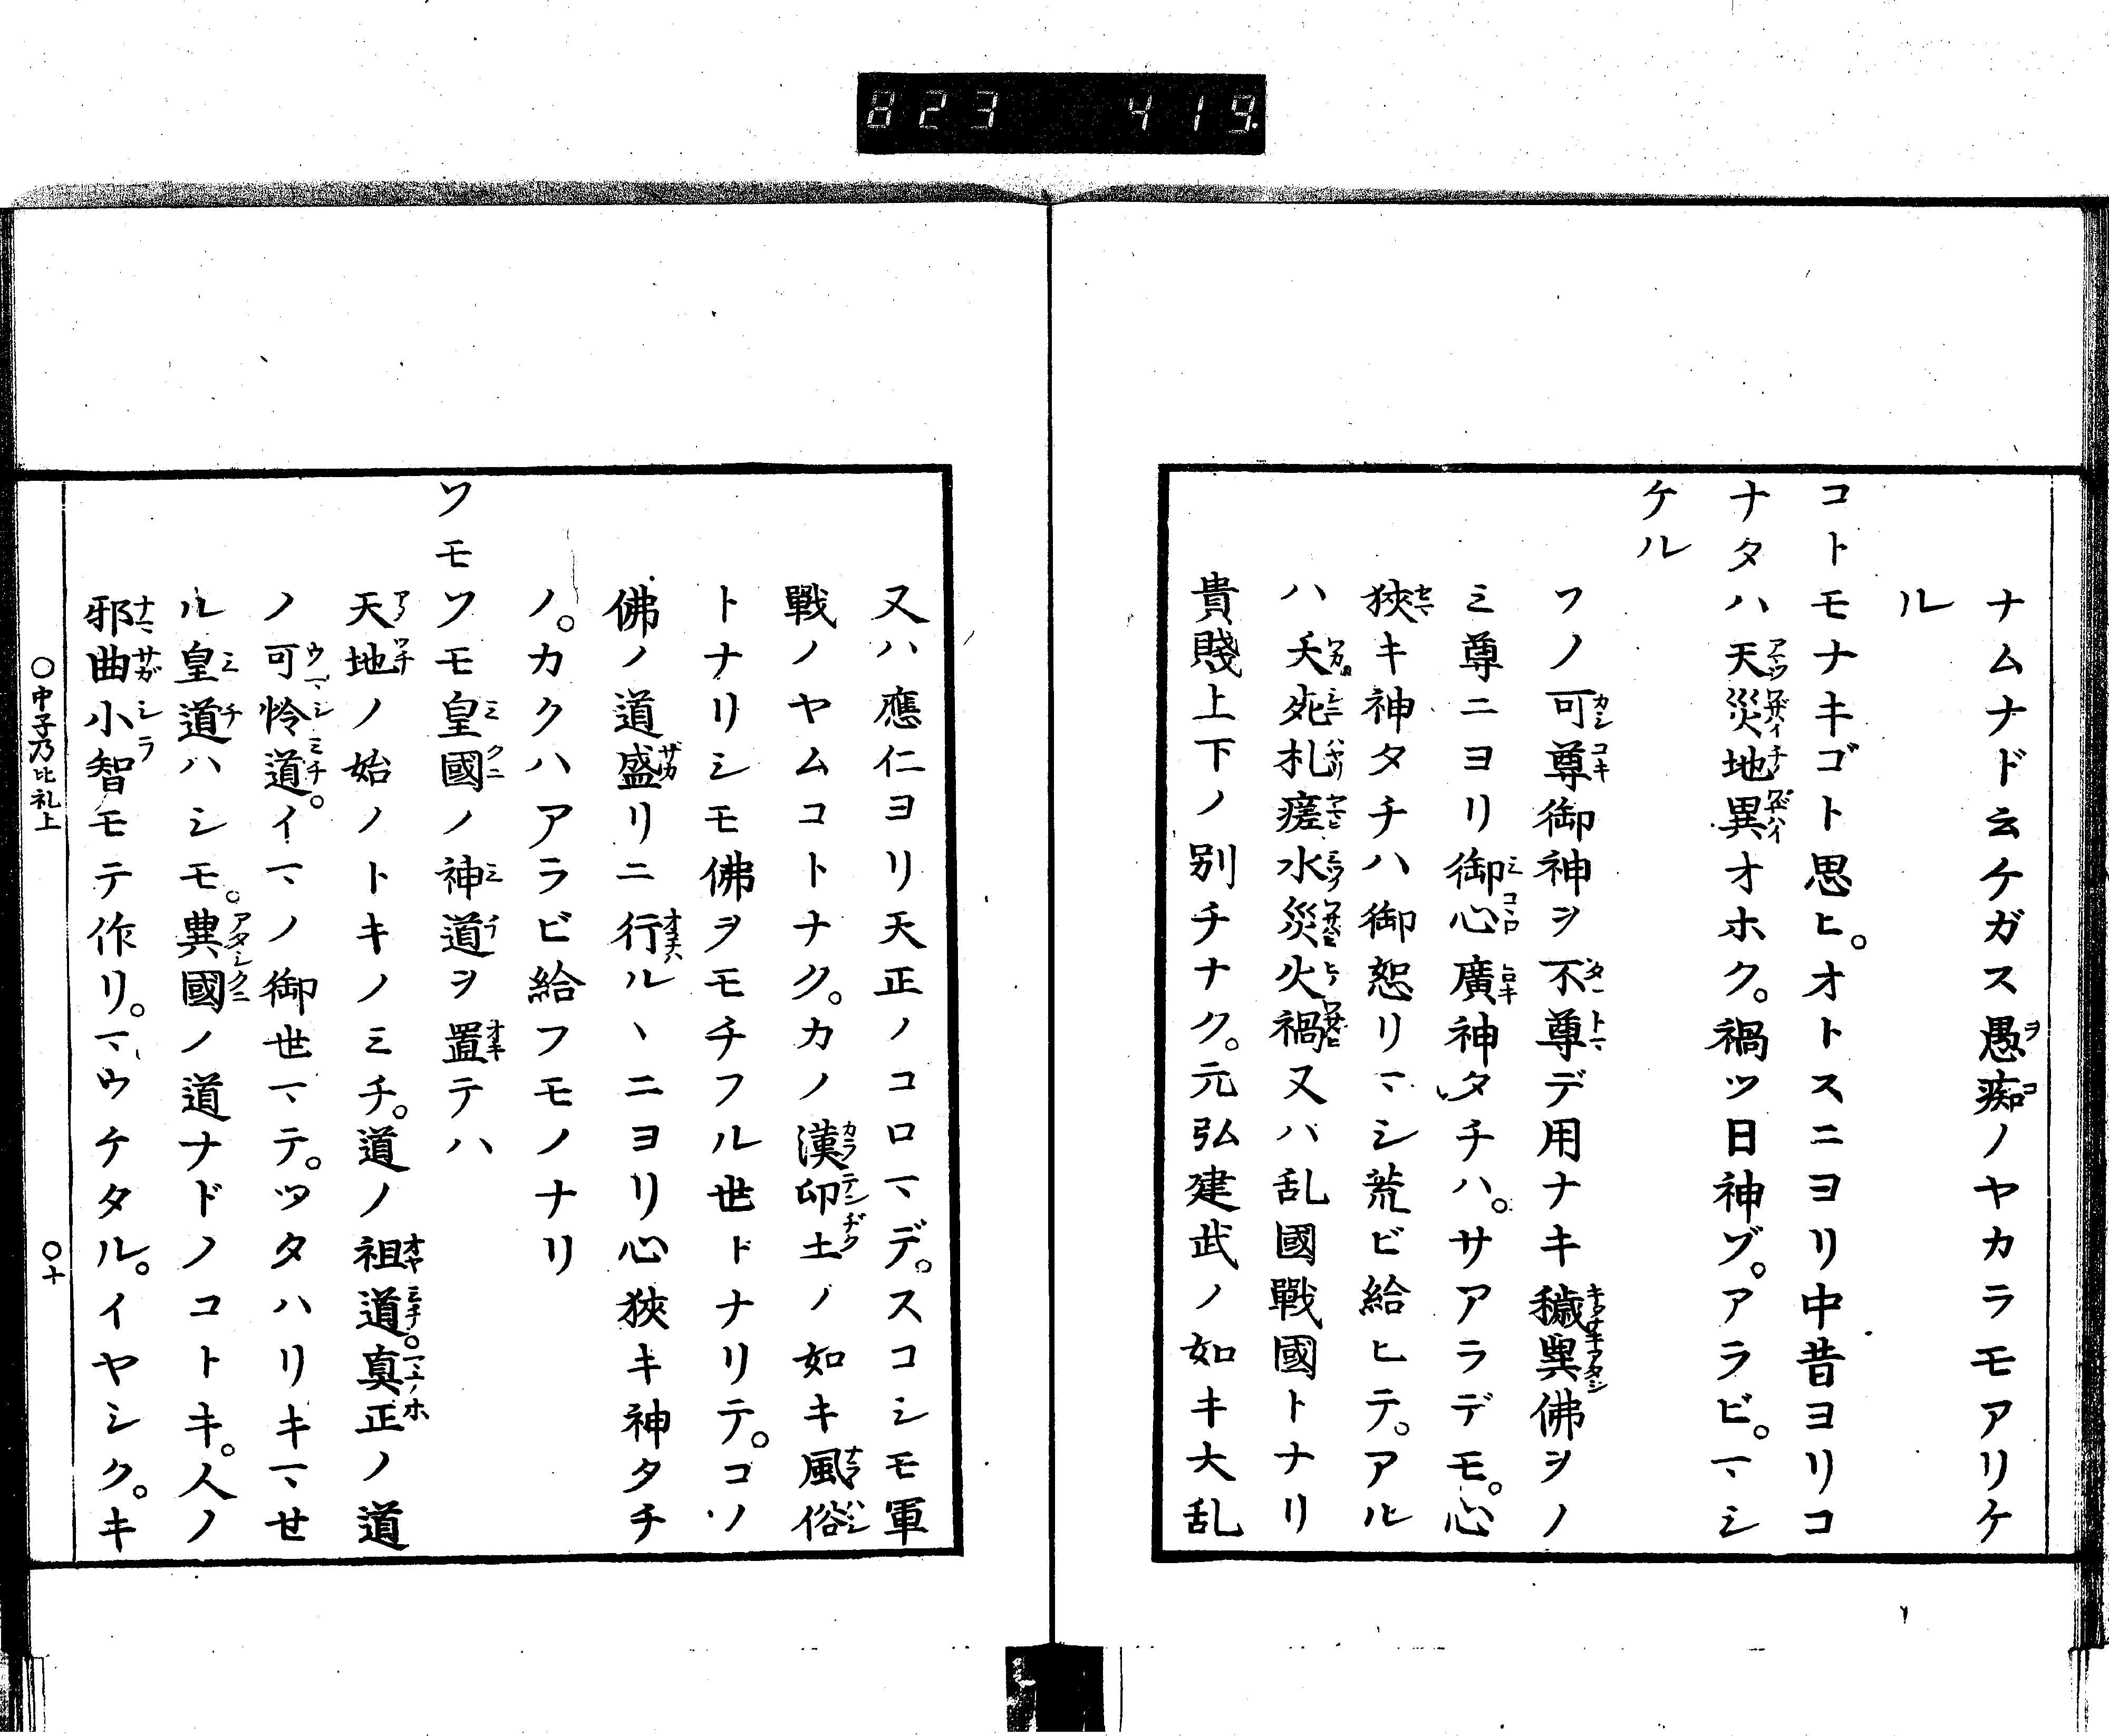 823 419
ナムナド云ケガス愚痴ノヤカラモアリケ
ル
コトモナキゴト思ヒ。オトスニヨリ中昔ヨリコ
ナタハ天災地異オホク。禍ツ日神ブ。アラビ。マシ
ケル
フノ可尊御神ヲ不尊デ用ナキ穢異佛ヲノ
ミ尊ニヨリ御心廣神タチハ。サアラデモ。心
狹キ神タチハ御恕リマシ荒ビ給ヒテ。アル
ハ夭死札瘥水災火禍又ハ乱國戰國トナリ
貴賤上下ノ別チナク。元弘建武ノ如キ大乱
又ハ應仁ヨリ天正ノコロマデ。スコシモ軍
戰ノヤムコトナク。カノ漢印土ノ如キ風俗
トナリシモ佛ヲモチフル世ドナリテ。コソ
佛ノ道盛リニ行ルヽニヨリ心狹キ神タチ
ノ。カクハアラビ給フモノナリ
ワモワモ皇國ノ神道ヲ置テハ
天地ノ始ノトキノミチ。道ノ祖道。真正ノ道
ノ可怜道。イマノ御世マテ。ツタハリキマせ
ル皇道ハシモ。異國ノ道ナドノコトキ。人ノ
邪曲小智モテ作リ。マウケタル。イヤシク。キ
○中子乃比礼上 ○十